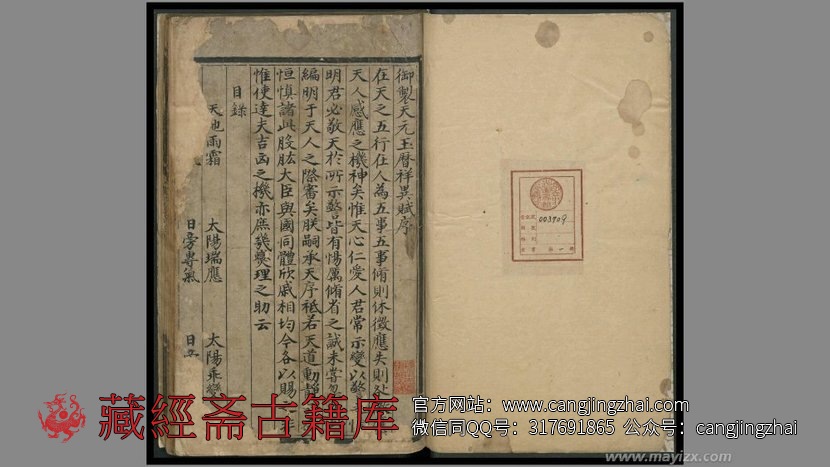 御製天元玉曆祥異賦序
在天之五行在人為五事五事脩則休徵應失則咎
天人感應之機神矣惟天心仁愛人君常示變以警
明君必敬天於所示警皆有惕厲脩省之誠未嘗忽
編明于天人之際審矣朕嗣承天序祗若天道動靜
恒慎諸此股肱大臣與國同體欣戚相均今各以賜
惟使達夫吉凶之機亦庶幾爕理之助云
目錄
天也雨霜 太陽瑞應 太陽乘
日旁專氣 日
003709
藏經斋古籍库
官方网站：www.cangjingzhai.com
微信同QQ号：317691865 公众号：cangjingzhai
www.mayizx.com